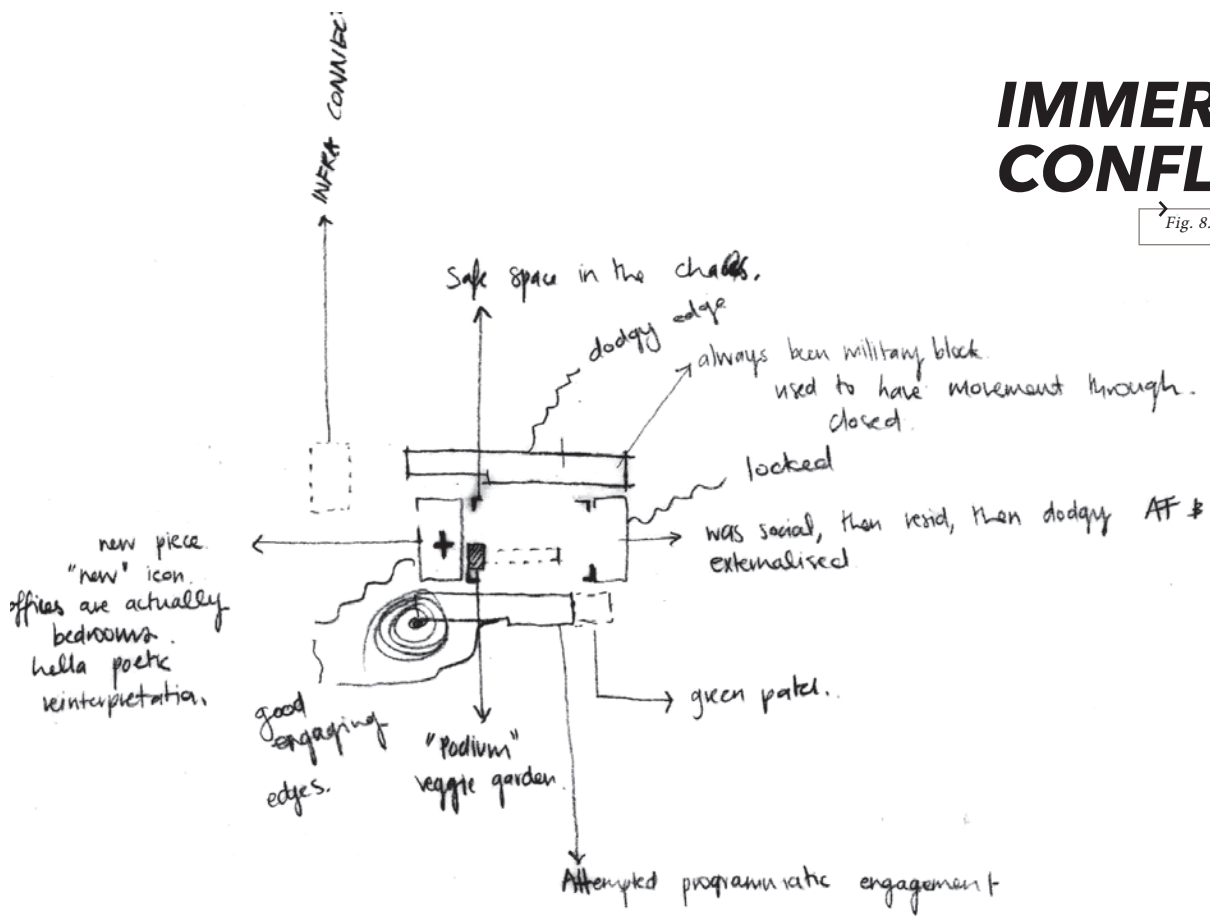 INFRA CONNEC
IMMER
CONFL
Fig. 8.
Safe space in the chaos.
dodgy edge
always been military block.
used to have movement through.
closed.
locked
was social, then resid, then dodgy AF &
externalised
new piece.
"new" icon.
offices are actually
bedrooms.
hella poetic
reinterpretation.
good
engaging
edges.
"Podium"
veggie garden
green patch.
Attempted programmatic engagement